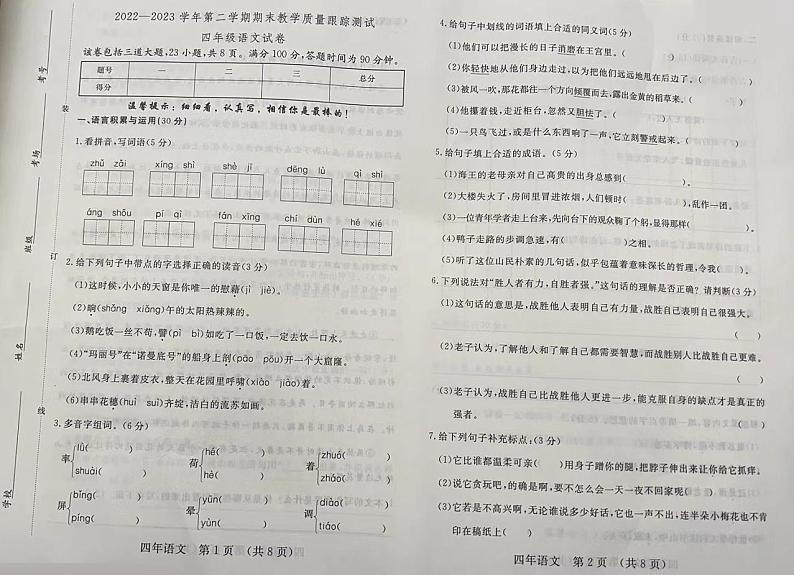 2022—2023学年第二学期期末教学质量跟踪测试
四年级语文试卷
该卷包括三道大题,23小题,共8页。满分100分,答题时间为90分钟。
题号 一 二 三 总分
得分
温馨提示:细细看,认真写,相信你是最棒的!
一、语言积累与运用(30分)
1.看拼音,写词语(5分)
zhǔ zǎi xíng shì shè jī dēng lù qì shì
áng shǒu pí qì fán xīng chí dùn hé xié
2.给下列句子中带点的字选择正确的读音(3分)
(1)这时候,小小的天窗是你唯一的慰藉(jí jiè)。
(2)晌(shǎng xiǎng)午的太阳热辣辣的。
(3)鹅吃饭一丝不苟,譬(pì bì)如吃了一口饭,一定去饮一口水。
(4)“玛丽号”在“诺曼底号”的船身上剖(pāo pōu)开一个大窟窿。
(5)北风身上裹着皮衣,整天在花园里呼啸(xiào jiào)着。
(6)串串花穗(huì suì)齐绽,洁白的流苏如画。
3.多音字组词。(6分)
率 lǜ( ) shuài( ) 荷 hé( ) hè( ) 着 zhuó( ) zháo( )
屏 bǐng( ) píng( ) 晕 yūn( ) yùn( ) 调 diào( ) tiáo( )
四年语文 第1页 (共8页)
4.给句子中划线的词语填上合适的同义词(5分)
(1)他们可以把漫长的日子消磨在王宫里。( )
(2)你轻快地从他们身边走过,以为把他们远远地甩在后边了。( )
(3)被风一吹,那花都往一个方向倾覆而去,露出金黄的稻草来。( )
(4)他攥着钱,走近柜台,忽然又胆怯了。( )
(5)一只鸟飞过,或是什么东西响了一声,它立刻警戒起来。( )
5.给句子填上合适的成语。(5分)
(1)海王的老母亲对自己高贵的出身总感到( )。
(2)大楼失火了,房间里冒进浓烟,人们顿时( ),乱作一团。
(3)一位青年学者走上台来,先向台下的观众鞠了个躬,显得那样( )。
(4)鸭子走路的步调急速,有( )之相。
(5)听了这位山民朴素的几句话,似乎包蕴着意味深长的哲理,令我( )。
6.下列说法对“胜人者有力,自胜者强。”这句话的理解是否正确?请判断(3分)
(1)这句话的意思是,战胜他人表明自己有力量,战胜自己表明自己很强大。
( )
(2)老子认为,了解他人和了解自己都需要智慧,而战胜别人比战胜自己更难。
( )
(3)老子认为,战胜自己比战胜他人更进一步,能克服自身的缺点才是真正的
强者。 ( )
7.给下列句子补充标点:(3分)
(1)它比谁都温柔可亲( )用身子蹭你的腿,把脖子伸出来让你给它抓痒。
(2)说它贪玩吧,的确是啊,要不怎么会一天一夜不回家呢( )
(3)它若是不高兴啊,无论谁说多少好话,它也一声不出,连半朵小梅花也不肯
印在稿纸上( )
四年语文 第2页 (共8页)
学校
姓名
班级
考场
考号
装
订
线